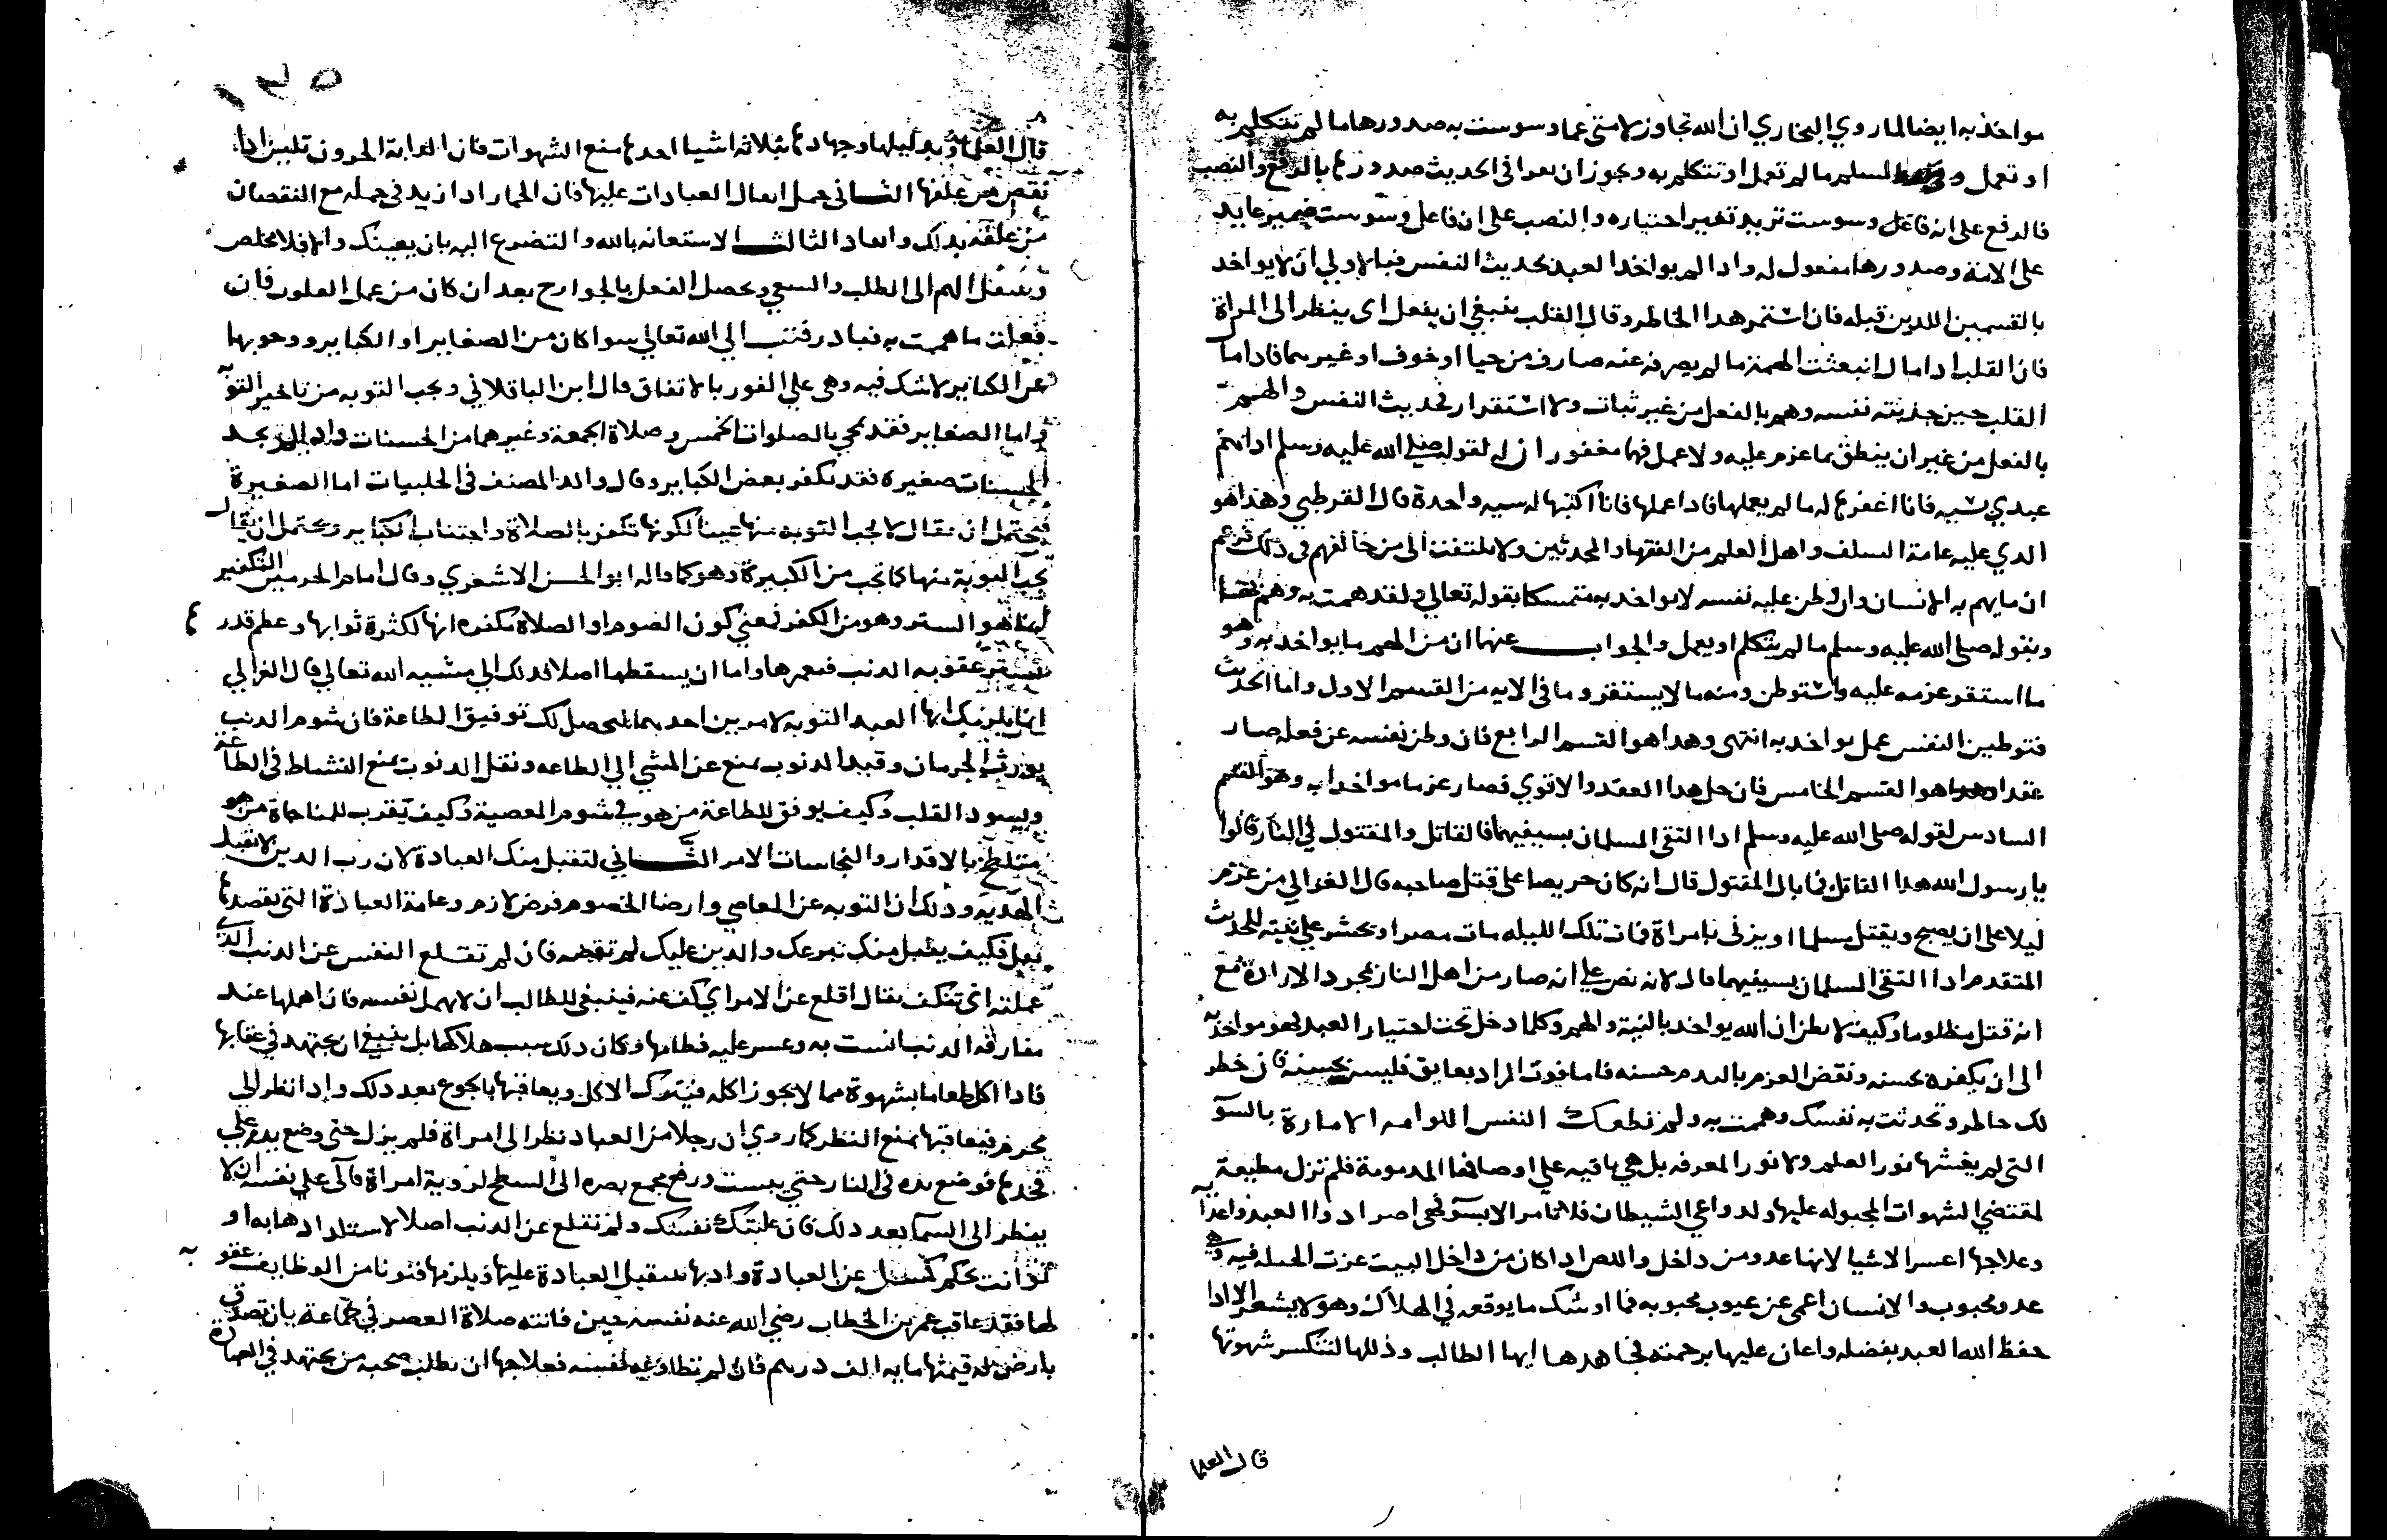 مواخذ به ايضا لما روي البخاري ان الله تجاوز لامتي عما وسوست به صدورها ما لم تتكلم به
او تعمل و لمسلم ما لم تعمل او تتكلم به ويجوز ان يقرا في الحديث صدورها بالرفع والنصب
فالرفع على انه فاعل وسوست تريد تغير اختياره والنصب على ان فاعل وسوست ضمير عايد
على الامة وصدورها مفعول له واذا لم يواخذ العبد بحديث النفس فبالاولي ان لا يواخذ
بالقسمين اللدين قبله فان استمر هدا الخاطر وقال القلب ينبغي ان يفعل اى ينظر الى المراة
فان القلب ادا مال انبعثت الهمة ما لم يصرفه عنه صارف من حيا او خوف او غيرهما فاداما
القلب حين جذبته نفسه وهم بالفعل من غير ثبات ولا استقرار فحديث النفس والهم
بالفعل من غير ان ينطق بما عزم عليه ولا عمل فهما مغفوران له لقوله صلى الله عليه وسلم ادا هم
عبدي بسيه فانا اغفرها له ما لم يعملها فادا عملها فانا اكتبها له سيه واحدة قال القرطبي وهذا هو
الدي عليه عامة السلف واهل العلم من الفقهاء والمحدثين ولا يلتفت الى من خالفهم في ذلك فزعم
ان ما يهم به الانسان وان وطن عليه نفسه لا يواخد به متمسكا بقوله تعالي ولقد همت به وهم بها
وبقوله صلى الله عليه وسلم ما لم يتكلم او يعمل والجواب عنها ان من الهم ما يواخد به وهو
ما استقر عزمه عليه واستوطن ومنه ما لا يستقر وما في الايه من القسم الاول واما الحديث
فتوطين النفس عمل يواخد به انتهى وهدا هو القسم الرابع فان وطن نفسه عن فعله صار
عقدا وهو القسم الخامس فان حل هدا العقد والا قوي فصار عزما مواخدا به وهو القسم
السادس لقوله صلى الله عليه وسلم ادا التقى المسلمان بسيفيهما فالقاتل والمقتول في النار قالوا
يا رسول الله هدا القاتل فما بال المقتول قال انه كان حريصا على قتل صاحبه قال الغزالي من عزم
ليلا على ان يصبح ويقتل مسلما او يزني بامراة فمات تلك الليله مات مصرا ويحشر على نيته للحديث
المتقدم ادا التقى المسلمان بسيفيهما قال لانه نص على انه صار من اهل النار بمجرد الارادة مع
انه قتل مظلوما وكيف لا يظن ان الله يواخد بالنية والهم وكلما دخل تحت اختيار العبد فهو مواخذ به
الى ان يكفره بحسنه ونقض العزم بالندم حسنه فاما فوت المراد بعايق فليس بحسنه فان خطر
لك خاطر وتحدثت به نفسك وهممت به ولم تطعك النفس اللوامه الامارة بالسو
التي لم يغشها نور العلم ولا نور المعرفه بل هي باقيه على اوصافها المدمومة فلم تزل مطيعة
لمقتضي الشهوات المجبوله عليها ولدواعي الشيطان فلا تامر الا بسو فهي اضر ادوا العبد واعدا به
وعلاجها اعسر الاشيا لانها عدو من داخل واللص ادا كان من داخل البيت عزت الحيله فيه وهي
عدو محبوب والانسان اعمى عن عيوب محبوبه فما اوشك ما يوقعه في الهلاك وهو لا يشعر الا ادا
حفظ الله العبد بفضله واعان عليها برحمته فجاهدها ايها الطالب وذللها لتنكسر شهوتها
قال العلما
١٣٥
قال العلماء تدليلها وجهادها بثلاثة اشيا احدها منع الشهوات فان الدابة الحرون تلين ادا
نقص من علفها الثاني حمل اثقال العبادات عليها فان الحمار ادا زيد في حمله مع النقصان
من علفه يدلك وانقاد الثالث الاستعانه بالله والتضرع اليه بان يعينك والا فلا مخلص
الهم الى الطلب والسعي ويحصل الفعل بالجوارح بعد ان كان من عمل القلوب فان
فعلت ما هممت به فبادر فتب الي الله تعالي سوا كان من الصغاير او الكباير ووجوبها
عن الكباير لا شك فيه وهي على الفور بالاتفاق قال ابن الباقلاني ويجب التوبه من تاخير التوبه
واما الصغاير فقد تمحي بالصلوات الخمس وصلاة الجمعة وغيرهما من الحسنات وادا لم يجد
الحسنات صغيره فقد تكفر بعض الكباير وقال والد المصنف في الحلبيات اما الصغيرة
فيحتمل ان يقال لا تجب التوبه منها عينا لكونها تكفر بالصلاة واجتناب الكباير ويحتمل ان يقال
تجب التوبة منها كما تجب من الكبيرة وهو كما قاله ابو الحسن الاشعري وقال امام الحرمين التكفير
انما هو الستر وهو من الكفر فمعني كون الصوم او الصلاة مكفره انها لكثرة ثوابها وعظم قدرها
تستر عقوبه الدنب فتغمرها واما ان يسقطها اصلا فدلك الي مشيه الله تعالي قال الغزالي
انما يلزمك ايها العبد التوبه لامرين احدهما لتحصل لك توفيق الطاعة فان شوم الدنب
يورث الحرمان وقيد الدنوب يمنع عن المشي الي الطاعه وثقل الدنوب يمنع النشاط في الطاعة
ويسود القلب وكيف يوفق للطاعة من هو في شوم المعصية وكيف يقرب للمناجاة من هو
متلطخ بالاقدار والنجاسات الامر الثاني لتقبل منك العبادة لان رب الدين لا يقبل
الهديه وذلك ان التوبه عن المعاصي وارضا الخصوم فرض لازم وعامة العبادة التي تقصدها
نفل فكيف يقبل منك تبرعك والدين عليك لم تقضه فان لم تقلع النفس عن الدنب الذي
عملته اى تنكف يقال اقلع عن الامر اي كف عنه فينبغي للطالب ان لا يهمل نفسه فان اهملها عند
مفارقه الدنب انست به وعسر عليه فطامها وكان دلك سبب هلاكها بل ينبغي ان يجتهد في عقابها
فادا اكل طعاما بشهوة مما لا يجوز اكله فيترك الاكل ويعاقبها بالجوع بعد دلك وادا نظر الى
محرم فيعاقبها بمنع النظر كما روي ان رجلا من العباد نظر الى امراة فلم يزل حتى وضع يده على
فخدها فوضع يده في النار حتي يبست ورفع مجمع بصره الى السطح لرؤية امراة فالى على نفسه ان لا
ينظر الى السما بعد دلك فان غلبتك نفسك ولم تقلع عن الدنب اصلا لاستلدادها به او
كسل عن العبادة وادبها بتثقيل العبادة عليها ويلزمها فنونا من الوظايف عقوبه
لها فقد عاقب عمر بن الخطاب رضي الله عنه نفسه حين فاتته صلاة العصر في جماعة بان تصدق
بارض له قيمتها مايه الف درهم فان لم تطاوعه نفسه فعلاجها ان يطلب صحبه من يجتهد في العبادة